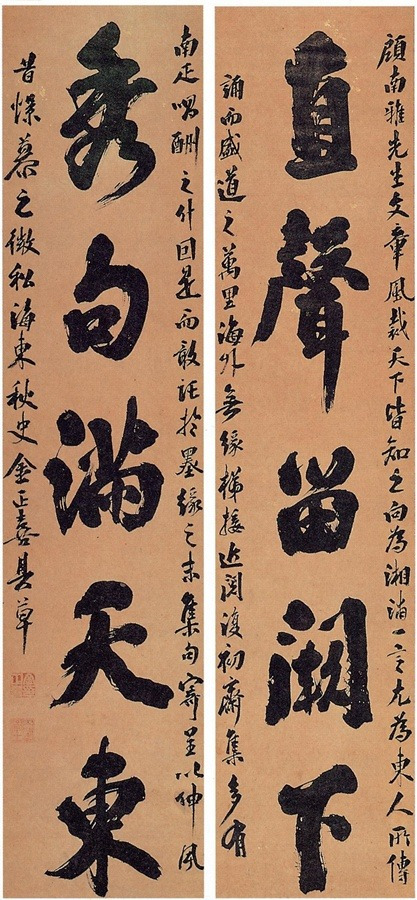 顧南雅先生文章風裁天下皆知之向為湘浦一言尤為東人所傳
直聲留闕下
誦而盛道之萬里海外無緣梯接近閱復初齋集多有
南疋唱酬之什因是而敢託於墨緣之末集句寄呈以伸夙
秀句滿天東
昔憬慕之微私海東秋史金正喜具草